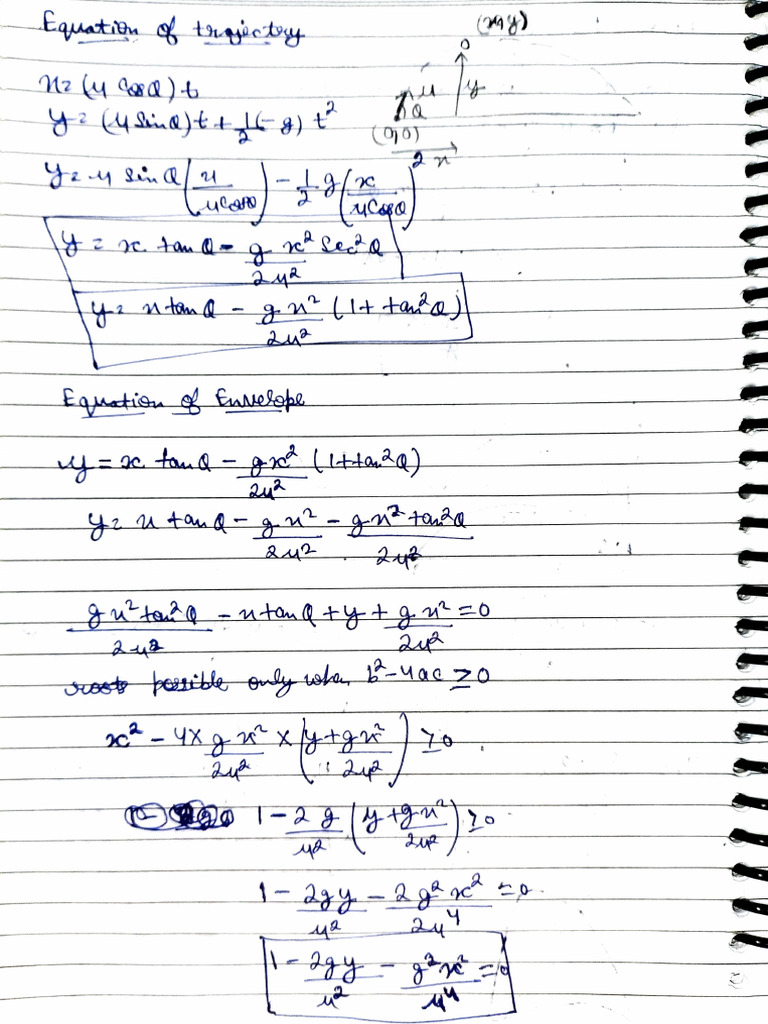 Equation of trajectory
(x,y)
x = (u cosθ) t
y = (u sinθ) t + 1/2 (-g) t²
u
y
θ
(0,0)
x
y = u sinθ (x/(u cosθ)) - 1/2 g (x/(u cosθ))²
y = x tanθ - gx²/2u² sec²θ
y = x tanθ - gx²/2u² (1 + tan²θ)
Equation of Envelope
y = x tanθ - gx²/2u² (1+tan²θ)
y = x tanθ - gx²/2u² - gx² tan²θ/2u²
gx² tan²θ/2u² - x tanθ + y + gx²/2u² = 0
roots possible only when b² - 4ac ≥ 0
x² - 4 × gx²/2u² × (y + gx²/2u²) ≥ 0
1 - 2g/u² (y + gx²/2u²) ≥ 0
1 - 2gy/u² - 2g²x²/2u⁴ = 0
1 - 2gy/u² - g²x²/u⁴ = 0